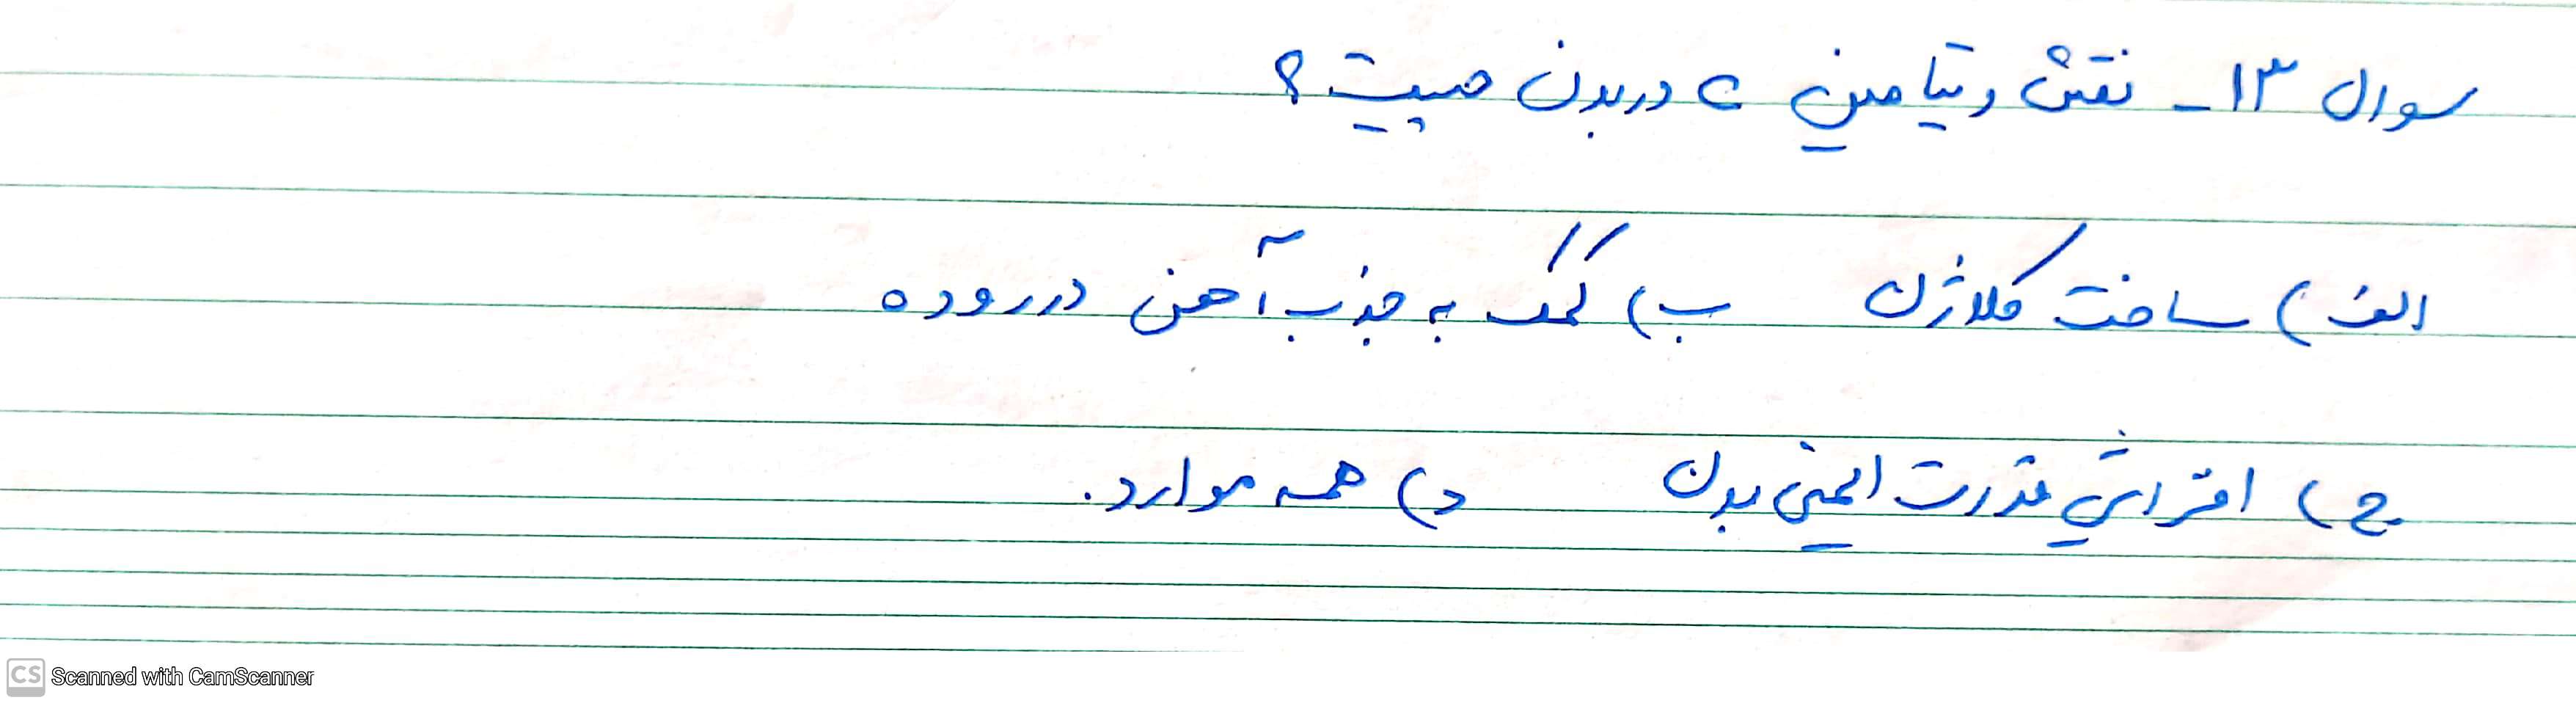 سوال ۱۳- نقش ویتامین C در بدن چیست؟
الف) ساخت کلاژن ب) کمک به جذب آهن در روده
ج) افزایش قدرت ایمنی بدن د) همه موارد.
CS Scanned with CamScanner